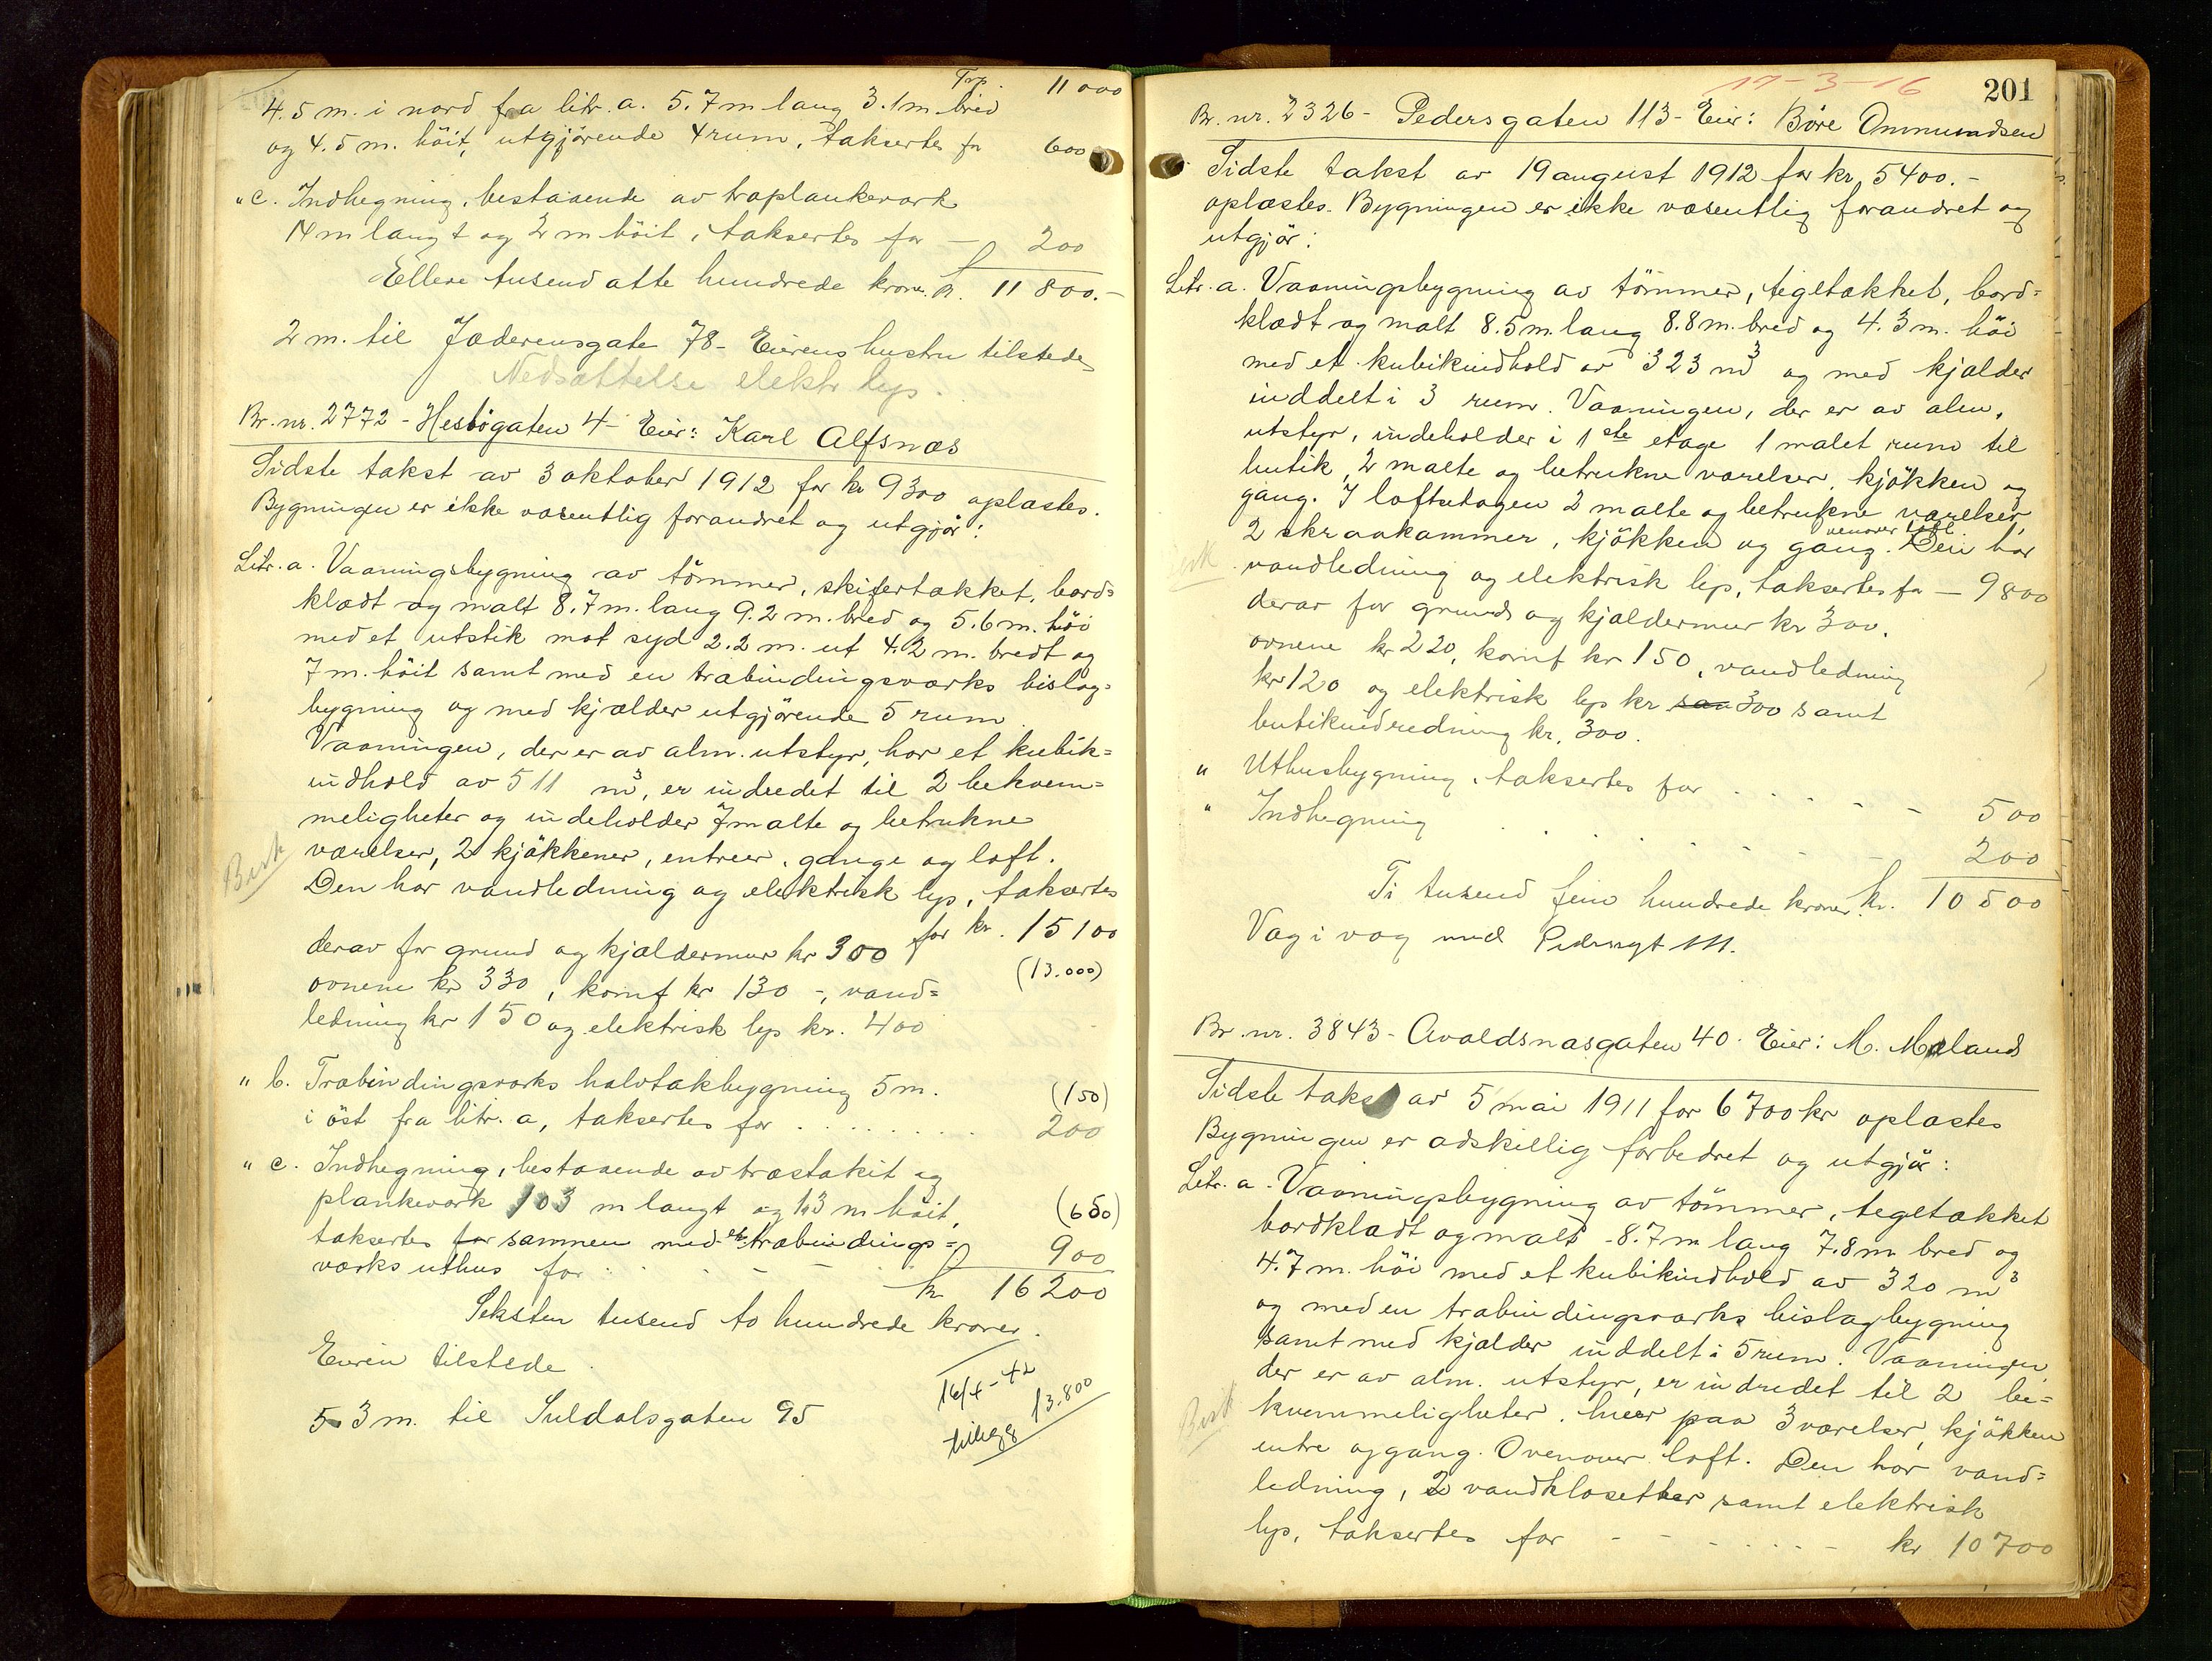 Trp. 11 000
4.5 m. i nord fra litr. a. 5.7 m lang 3.1 m. bred
og 4.5 m. höit, utgjörende 4 rum, taksertes for 600
" c. Indhegning, bestaaende av træplankeverk
14 m langt og 2 m höit, taksertes for — 200
Elleve tusend otte hundrede kroner. kr. 11 800.-
2 m. til Jæderensgate 78 - Eierens hustru tilstede
Nedsættelse elektr. lys.
Br. nr. 2772 - Hesbögaten 4 - Eier: Karl Alfsnæs
Sidste takst av 3 oktober 1912 for kr 9300 oplæstes.
Bygningen er ikke væsentlig forandret og utgjör:
Litr. a. Vaaningsbygning av tömmer, skifertækket, bord=
klædt og malt 8.7 m. lang 9.2 m. bred og 5.6 m. höi
med et utstik mot syd 2.2 m. ut 4.2 m. bredt og
7 m. höit samt med en træbindingsværks bislag=
bygning og med kjælder utgjörende 5 rum.
Vaaningen, der er av alm. utstyr, har et kubik=
indhold av 511 m³, er indredet til 2 bekvem=
meligheter og indeholder 7 malte og betrukne
værelser, 2 kjökkener, entreer, gange og loft.
Den har vandledning og elektrisk lys, taksertes
for kr. 15100
derav for grund og kjældermur kr 300
(13.000)
ovnene kr 330, komf kr 130 -, vand=
ledning kr 150 og elektrisk lys kr. 400
" b. Træbindingsværks halvtakbygning 5 m. (150)
i öst fra litr. a, taksertes for . . . . . . . . 200
" c. Indhegning, bestaaende av træstakit og
plankeverk 103 m langt og 1.3 m höit, (650)
taksertes for sammen med et træbindings=
værks uthus for . . . - - - 900
kr 16200
Seksten tusend to hundrede kroner.
Eieren tilstede.
5 3 m. til Suldalsgaten 95
16/4 - 42
13.800
tillegg
Bisk
17-3-16
201
Br. nr. 2326 - Pedersgaten 113 - Eier: Böre Ommundsen
Sidste takst av 19 august 1912 for kr. 5400.-
oplæstes. Bygningen er ikke væsentlig forandret og
utgjör:
Litr. a. Vaaningsbygning av tömmer, tegltækket, bord=
klædt og malt 8.5 m. lang 8.8 m. bred og 4.3 m. höi
med et kubikindhold av 323 m³ og med kjælder
inddelt i 3 rum. Vaaningen, der er av alm.
utstyr, indeholder i 1ste etage 1 malet rum til
butik, 2 malte og betrukne værelser, kjökken og
gang. I loftsetagen 2 malte og betrukne værelser,
2 skraakammer, kjökken og gang. Den har
vandledning og elektrisk lys, taksertes for — 9800
derav for grund og kjældermur kr 300,
ovnene kr 220, komf kr 150, vandledning
kr 120 og elektrisk lys kr 300 samt
butikindredning kr. 300.
" Uthusbygning, taksertes for . . . - - 500
" Indhegning . . . . - - - 200
Ti tusend fem hundrede kroner. kr. 10 500
Væg i væg med Pedersgt 111.
Br. nr. 3843 - Avaldsnæsgaten 40. Eier: M. Mæland
Sidste takst av 5 mai 1911 for 6700 kr oplæstes
Bygningen er adskillig forbedret og utgjör:
Litr. a. Vaaningsbygning av tömmer, tegltækket
bordklædt og malt - 8.7 m lang 7.8 m bred og
4.7 m. höi med et kubikindhold av 320 m³
og med en træbindingsværks bislagbygning
samt med kjælder inddelt i 5 rum. Vaaningen,
der er av alm. utstyr, er indredet til 2 be=
kvemmeligheter, hver paa 3 værelser, kjökken
entre og gang. Ovenover loft. Den har vand=
ledning, 2 vandklosetter samt elektrisk
lys, taksertes for - - . . . . - kr 10700
Bisk